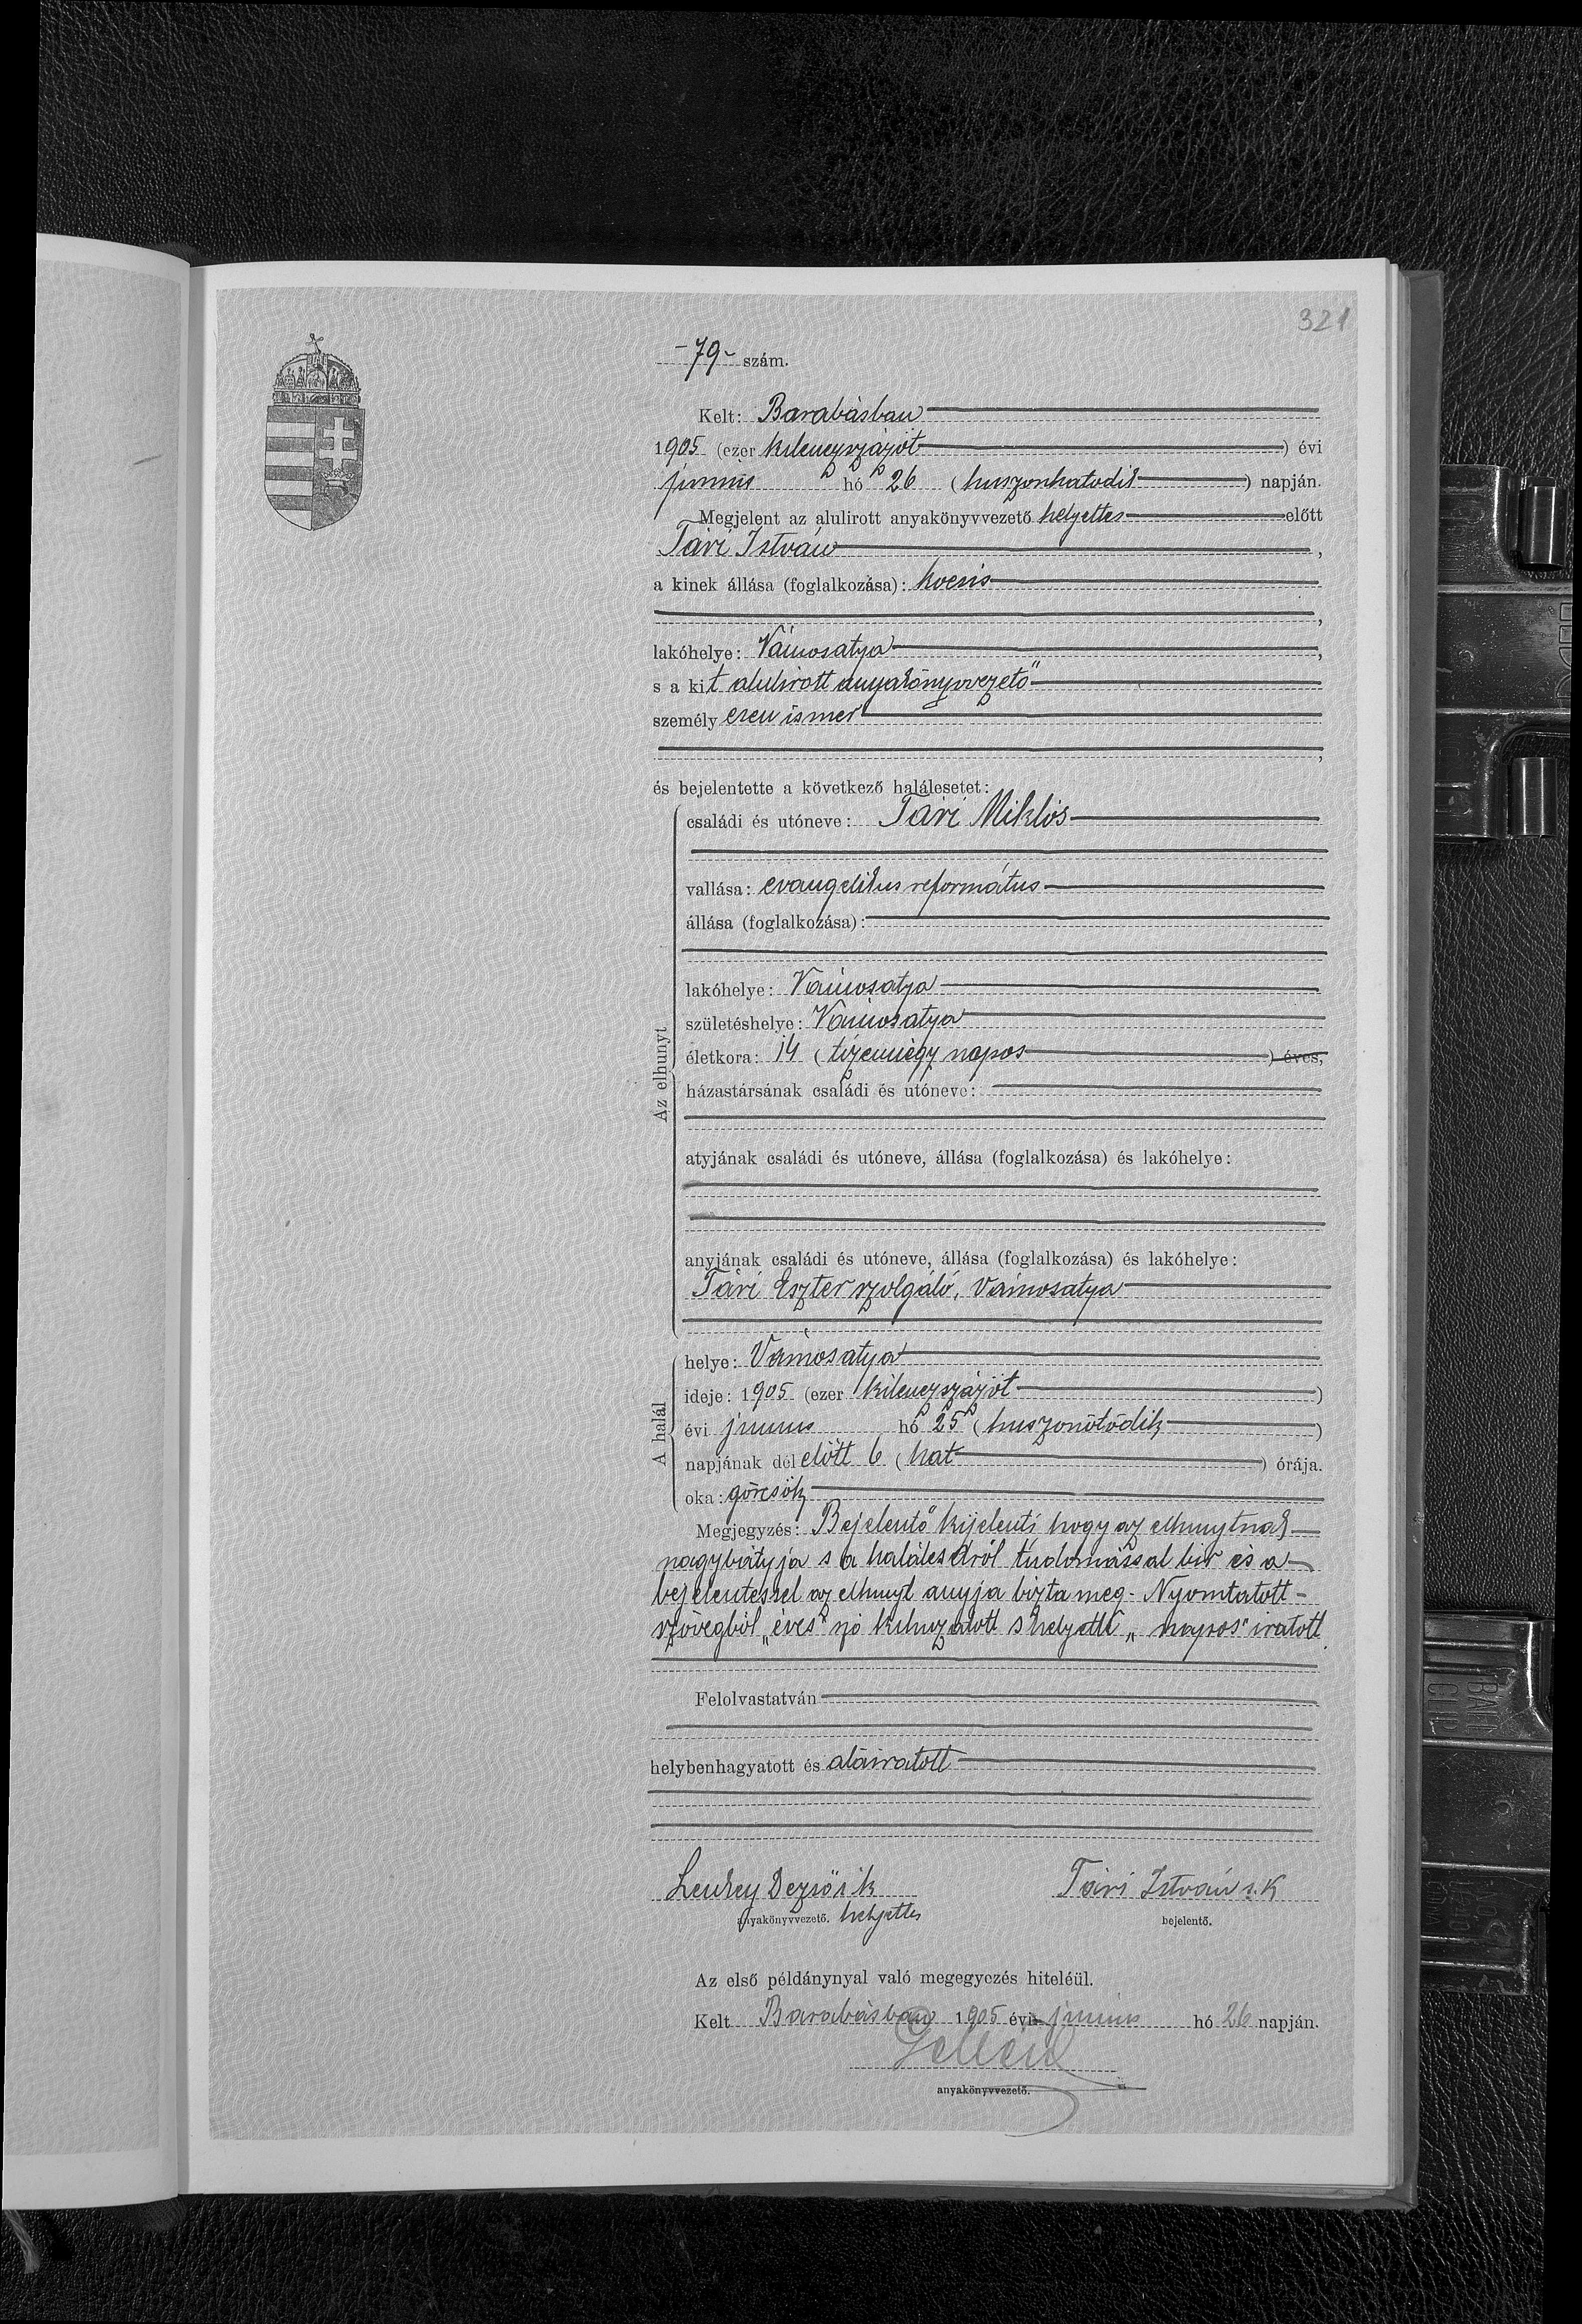 321
-79- szám.
Kelt: Barabásban
1905 (ezer kilenczszázöt) évi
junius hó 26 (huszonhatodik) napján.
Megjelent az alulirott anyakönyvvezető helyettes előtt
Tari István,
a kinek állása (foglalkozása): kocsis
,
lakóhelye: Vámosatya,
s a kit alulirott anyakönyvvezető
személyesen ismer
,
és bejelentette a következő halálesetet:
Az elhunyt
családi és utóneve: Tari Miklós
vallása: evangelikus református
állása (foglalkozása):
lakóhelye: Vámosatya
születéshelye: Vámosatya
életkora: 14 (tizennégy napos) éves,
házastársának családi és utóneve:
atyjának családi és utóneve, állása (foglalkozása) és lakóhelye:
anyjának családi és utóneve, állása (foglalkozása) és lakóhelye:
Tari Eszter szolgáló, Vámosatya
A halál
helye: Vámosatya
ideje: 1905 (ezer kilenczszázöt)
évi junius hó 25 (huszonötödik)
napjának délelőtt 6 (hat) órája.
oka: görcsök
Megjegyzés: Bejelentő kijelenti hogy az elhunytnak
nagybátyja s a halálesetről tudomással bir és a
bejelentéssel az elhunyt anyja bizta meg - Nyomtatott
szövegből „éves" szó kihuzatott s helyette „napos" iratott.
Felolvastatván
helybenhagyatott és aláiratott
Dezső s. k. Tari István s. k
anyakönyvvezető. helyettes bejelentő.
Az első példánynyal való megegyezés hiteléül.
Kelt Barabásban 1905 évi junius hó 26 napján.
anyakönyvvezető.